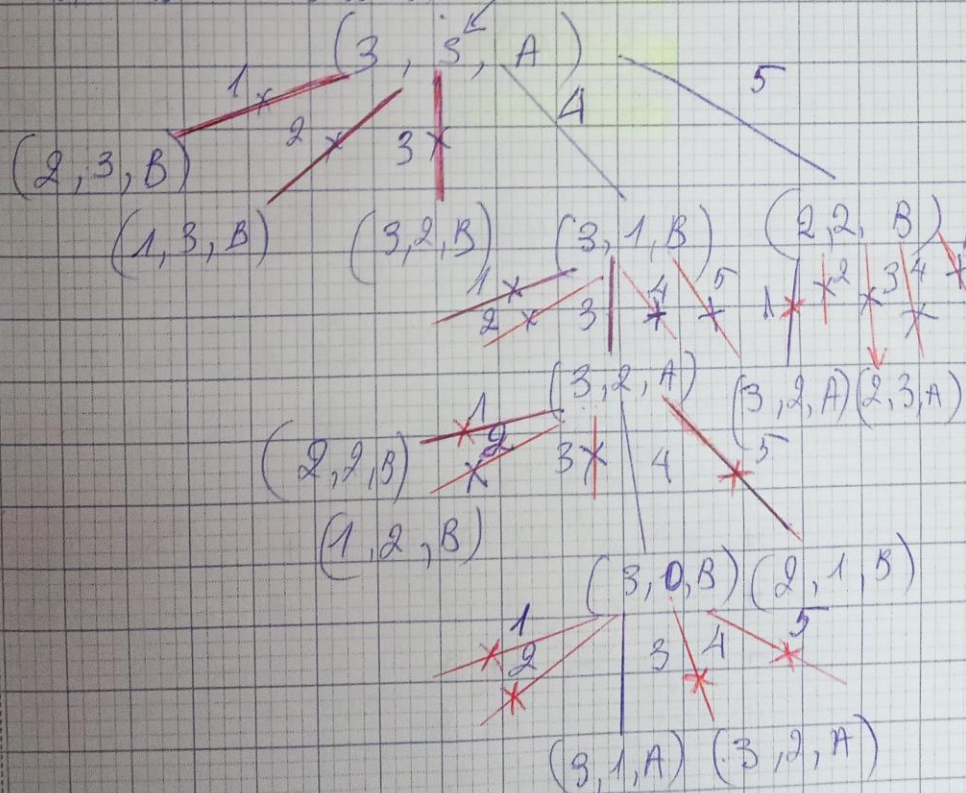 (3, 3, A)
1 2 3 4 5
(2, 3, B)
(1, 3, B) (3, 2, B) (3, 1, B) (2, 2, B)
1 2 3 4 5 1 2 3 4
(3, 2, A) (3, 2, A) (2, 3, A)
1 2 3 4 5
(2, 2, B)
(1, 2, B)
(3, 0, B) (2, 1, B)
1 2 3 4 5
(3, 1, A) (3, 2, A)